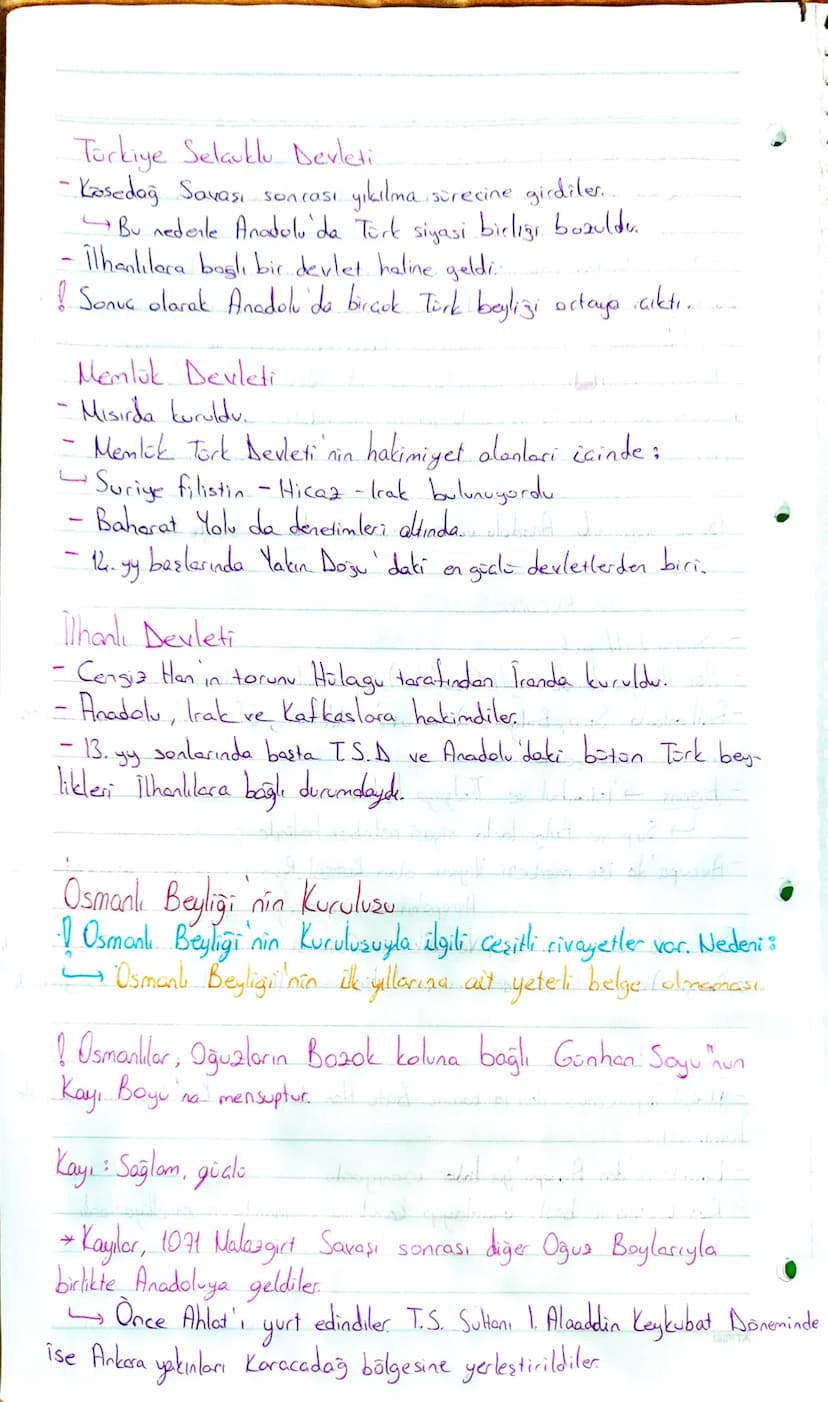 Türkiye Selçuklu Devleti
- Kösedağ Savaşı sonrası yıkılma sürecine girdiler.
↳ Bu nedenle Anadolu'da Türk siyasi birliği bozuldu.
- İlhanlılara bağlı bir devlet haline geldi.
! Sonuç olarak Anadolu'da birçok Türk beyliği ortaya çıktı.
Memlük Devleti
- Mısırda kuruldu.
- Memlük Türk Devleti'nin hakimiyet alanları içinde:
↳ Suriye filistin - Hicaz - Irak bulunuyordu
- Baharat Yolu da denetimleri altında.
- 12. yy başlarında Yakın Doğu'daki en güçlü devletlerden biri.
İlhanlı Devleti
- Cengiz Han'ın torunu Hülagu tarafından İranda kuruldu.
- Anadolu, Irak ve Kafkaslara hakimdiler.
- 13. yy sonlarında başta T.S.D ve Anadolu'daki bütün Türk bey-
likleri İlhanlılara bağlı durumdaydı.
Osmanlı Beyliği'nin Kuruluşu
! Osmanlı Beyliği'nin Kuruluşuyla ilgili çeşitli rivayetler var. Nedeni:
↳ Osmanlı Beyliği'nin ilk yıllarına ait yeterli belge olmaması.
! Osmanlılar, Oğuzların Bozok koluna bağlı Günhan Soyu"nun
Kayı Boyu'na mensuptur.
Kayı: Sağlam, güçlü
* Kayılar, 1071 Malazgirt Savaşı sonrası diğer Oğuz Boylarıyla
birlikte Anadoluya geldiler.
↳ Önce Ahlat'ı yurt edindiler. T.S. Sultanı I. Alaaddin Keykubat Döneminde
ise Ankara yakınları Karacadağ bölgesine yerleştirildiler.